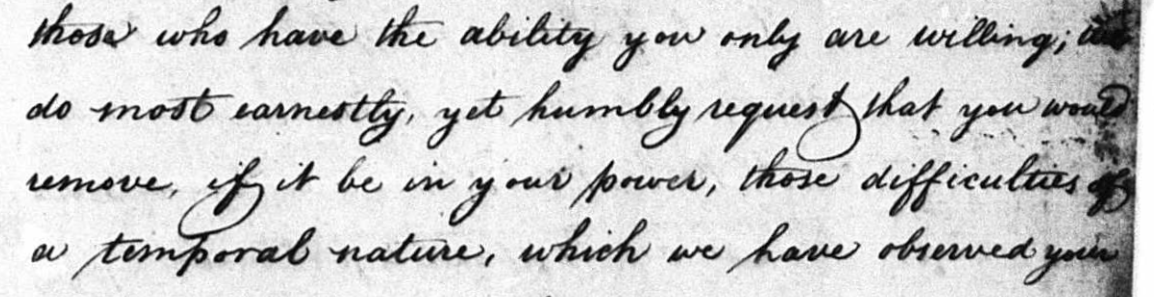 those who have the ability you only are willing; we
do most earnestly, yet humbly request that you would
remove, if it be in your power, those difficulties of
a temporal nature, which we have observed your